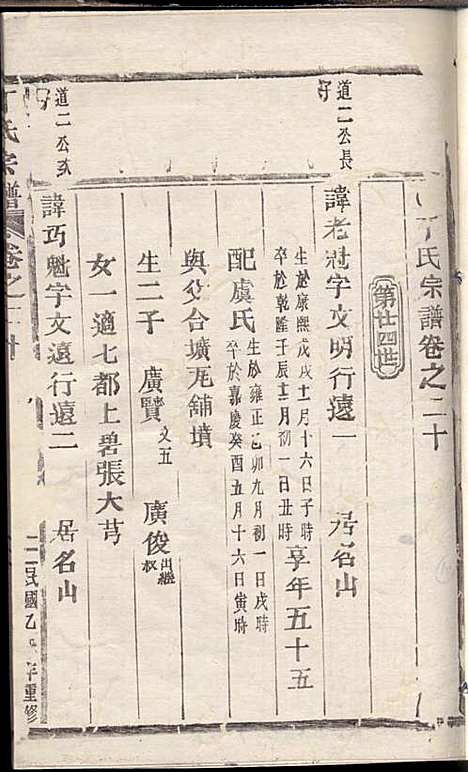 丁氏宗譜卷之二十
第廿四世
道二公長子
諱老魁字文明行遠一 居名山
生於康熙戊戌十一月十六日子時
卒於乾隆壬辰十二月初一日丑時
享年五十五
配虞氏
生於雍正乙卯九月初一日戌時
卒於嘉慶癸酉五月十六日寅時
與父合壙瓦舖墳
生二子 廣賢 文五 廣俊 出繼叔
女一適七都上碧張大芎
道二公次子
諱巧魁字文遠行遠二 居名山
丁氏宗譜 卷之二十
民國乙 年重修